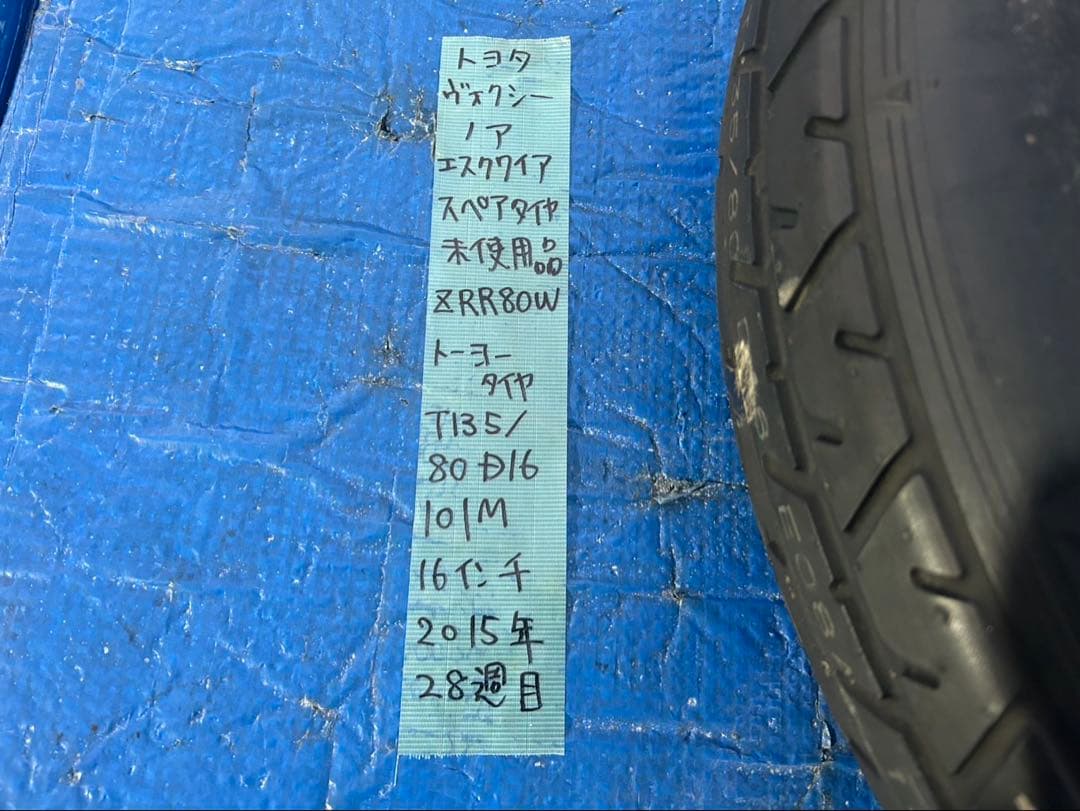 トヨタ
ヴォクシー
ノア
エスクワイア
スペアタイヤ
未使用品
ZRR80W
トーヨー
タイヤ
T135/
80D16
101M
16インチ
2015年
28週目